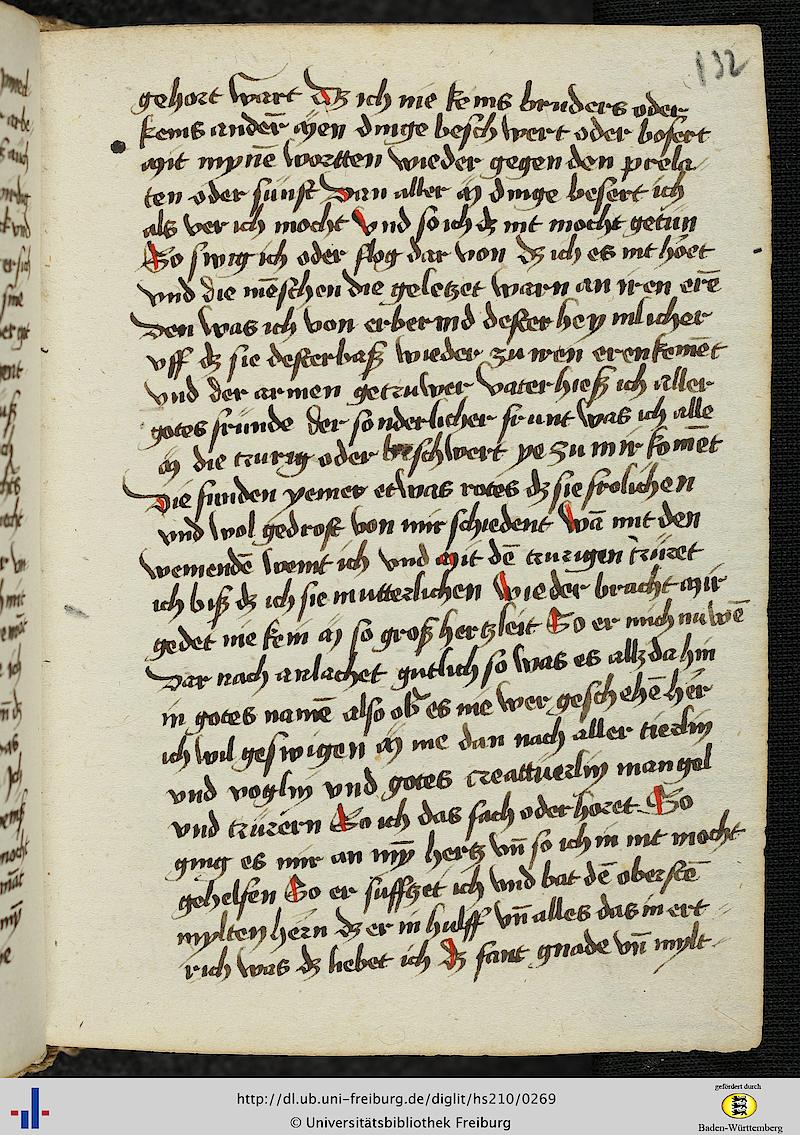 132
gehort wart dz ich nie keins bruders oder
keins ander̄ m̄en dinge beschwert oder bosert
mit mynē wortten wieder gegen den prela
ten oder sunst Dan aller m̄ dinge besert ich
als ver ich mocht Vnd so ich dz nit mocht getün
So swig ich oder flog dar von dz ich es nit hoet
vnd die mēschen die geletzet warn an iren erē
Den was ich von erbermd dester heymlicher
vff dz sie desterbaß wieder zu iren eren komēt
vnd der armen getruwer vater hieß ich aller
gotes fründe der sonderlicher frunt was ich alle
m̄ die trurig oder beschwert ye zu mir komēt
Die funden yemer etwas rotes dz sie frolichen
vnd wol gedrost von mir schiedent Wā mit den
weinendē weint ich vnd mit dē trurigen trüret
ich biß dz ich sie mutterlichen Wieder bracht mir
gedet nie kein m̄ so groß hertzleit So er mich nu wē
Dar nach anlachet gutlich so was es allz da hin
in gotes namē also ob es nie wer geschehē her
ich wil geswigen m̄ me dan nach aller tierlin
vnd voglin vnd gotes creattuerlin mangel
vnd trürern So ich das sach oder horet So
ging es mir an my hertz vn̄ so ich in nit mocht
gehelfen So er suffzet ich vnd bat dē oberstē
mylten hern dz er in hulff vn̄ alles das in ert
rich was dz liebet ich dz fant gnade vn̄ mylt
http://dl.ub.uni-freiburg.de/diglit/hs210/0269
© Universitätsbibliothek Freiburg
gefördert durch
Baden-Württemberg